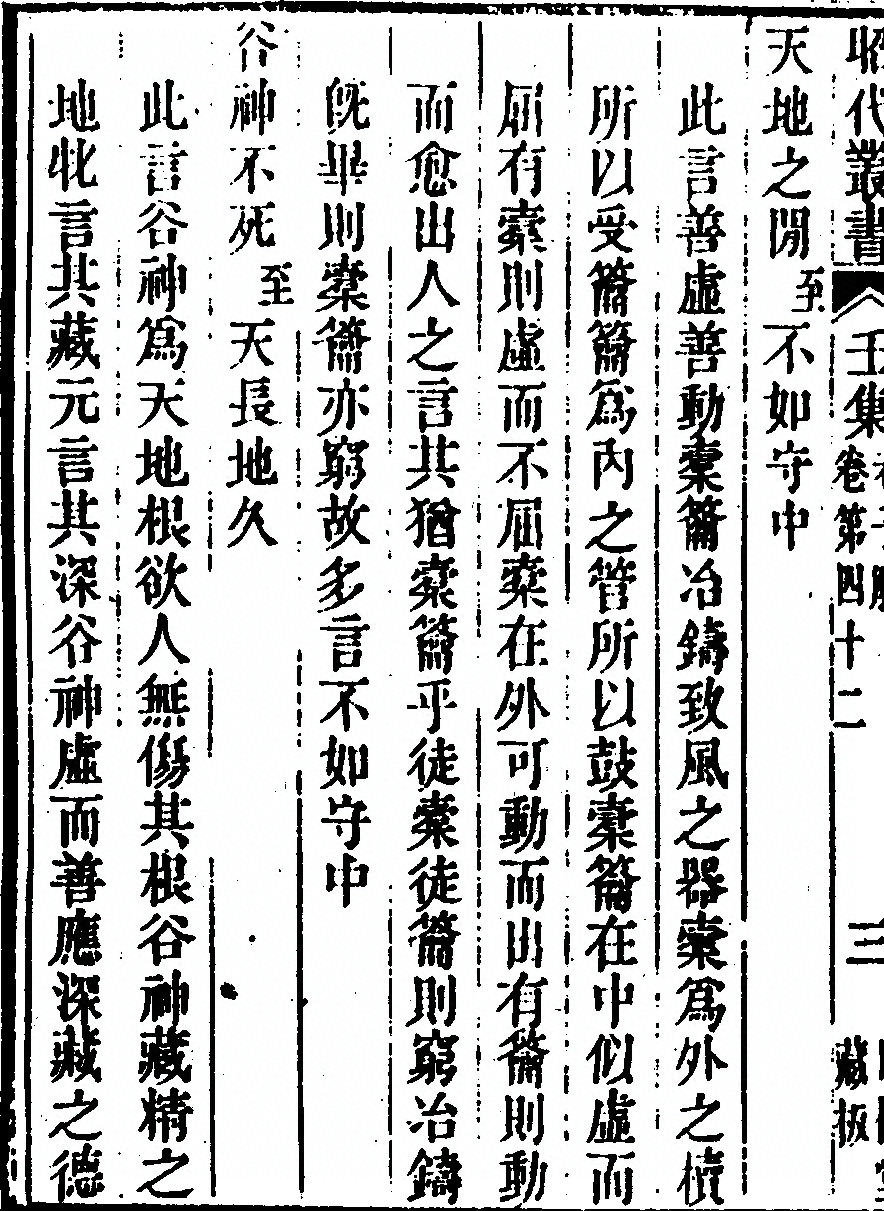 昭代叢書 壬集 卷第四十二 三 藏板
天地之閒至不如守中
此言善虛善動橐籥冶鑄致風之器橐爲外之櫝
所以受籥籥爲內之管所以鼓橐籥在中似虛而
屈有橐則虛而不屈橐在外可動而出有籥則動
而愈出人之言其猶橐籥乎徒橐徒籥則窮冶鑄
旣畢則橐籥亦窮故多言不如守中
谷神不死至天長地久
此言谷神爲天地根欲人無傷其根谷神藏精之
地牝言其藏元言其深谷神虛而善應深藏之德